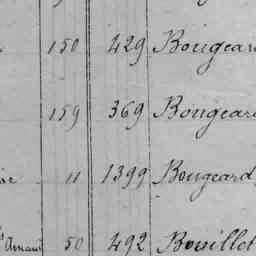 150 429 Bougeard
159 369 Bougeard
11 1399 Bougeard
50 492 Bouillot